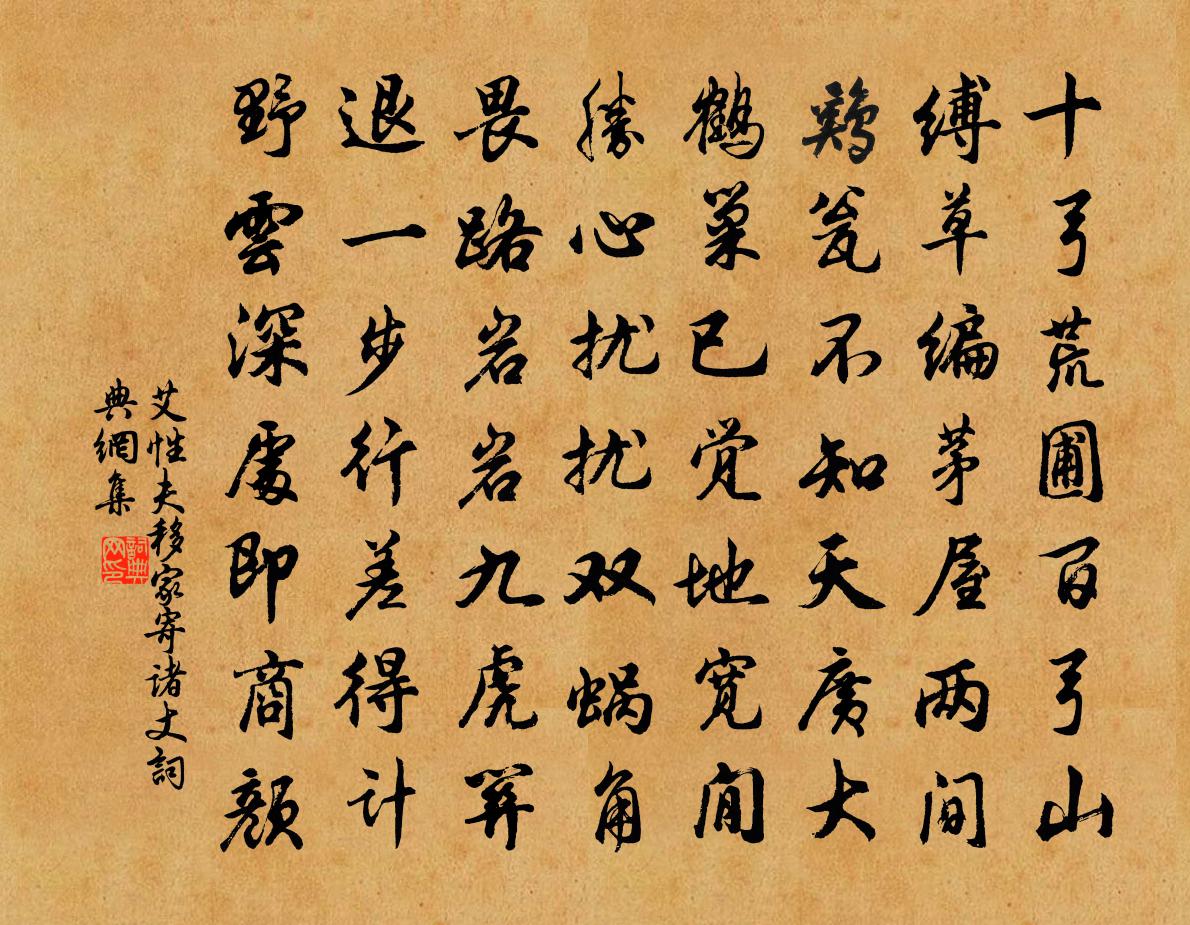 十弓荒圃百弓山
缚草编茅屋两间
鷄瓮不知天广大
鹤巢已觉地宽闲
勝心扰扰双蜗角
畏路岩岩九虎关
退一步行差得计
野雲深處即商颜
艾性夫移家寄诸丈詞
典網集
詞典
网印